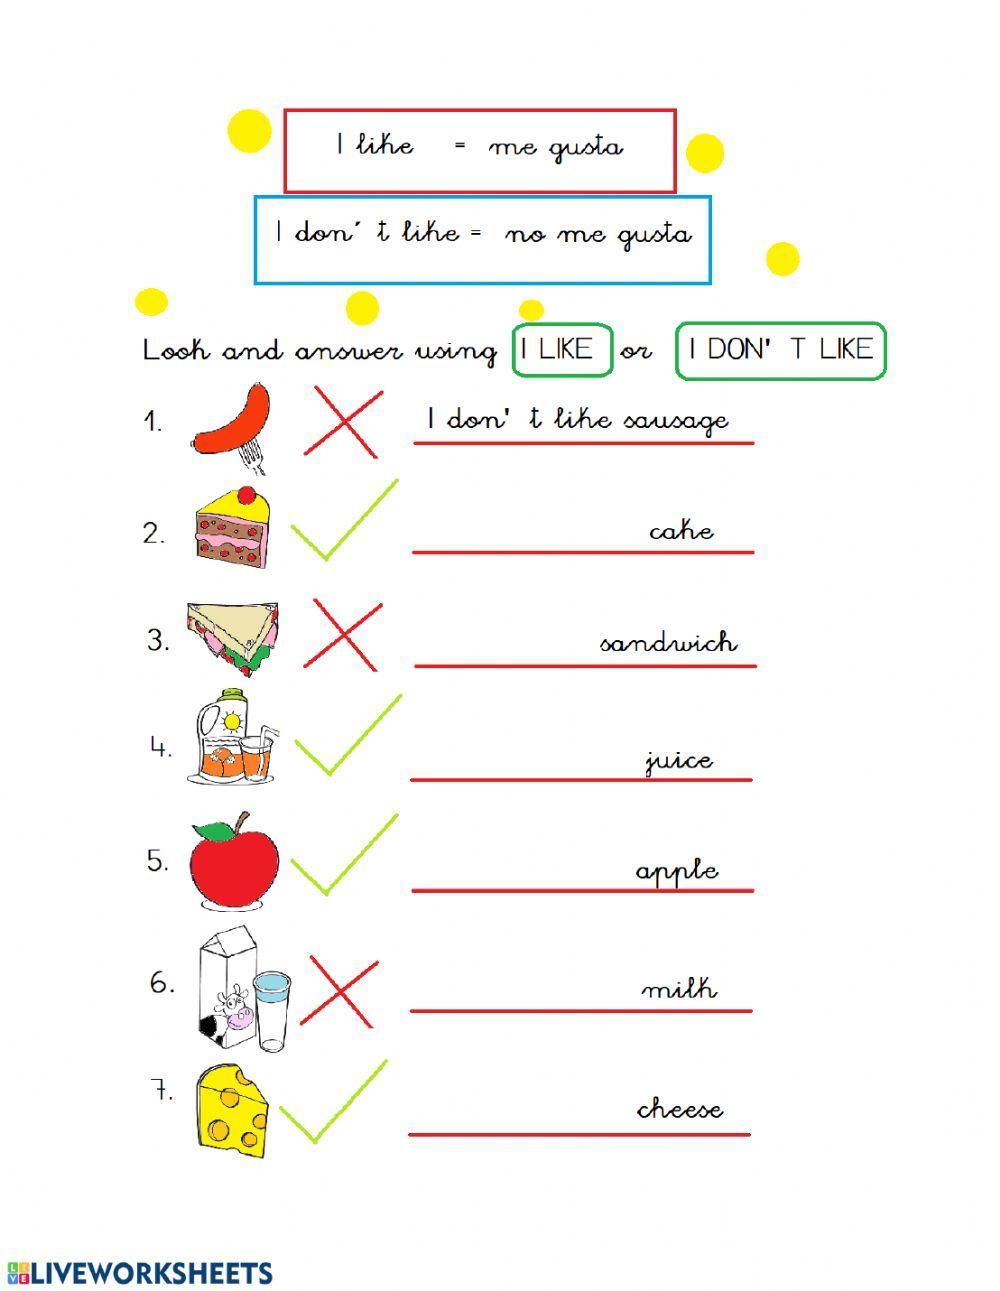 I like = me gusta
I don´ t like = no me gusta
Look and answer using I LIKE or I DON' T LIKE
1. I don' t like sausage
2. cake
3. sandwich
4. juice
5. apple
6. milk
7. cheese
LIVE LIVEWORKSHEETS